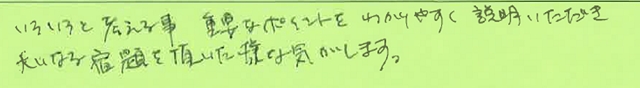 いろいろと考える事 重要なポイントをわかりやすく説明いただき
大いなる宿題を頂いた様な気がします。